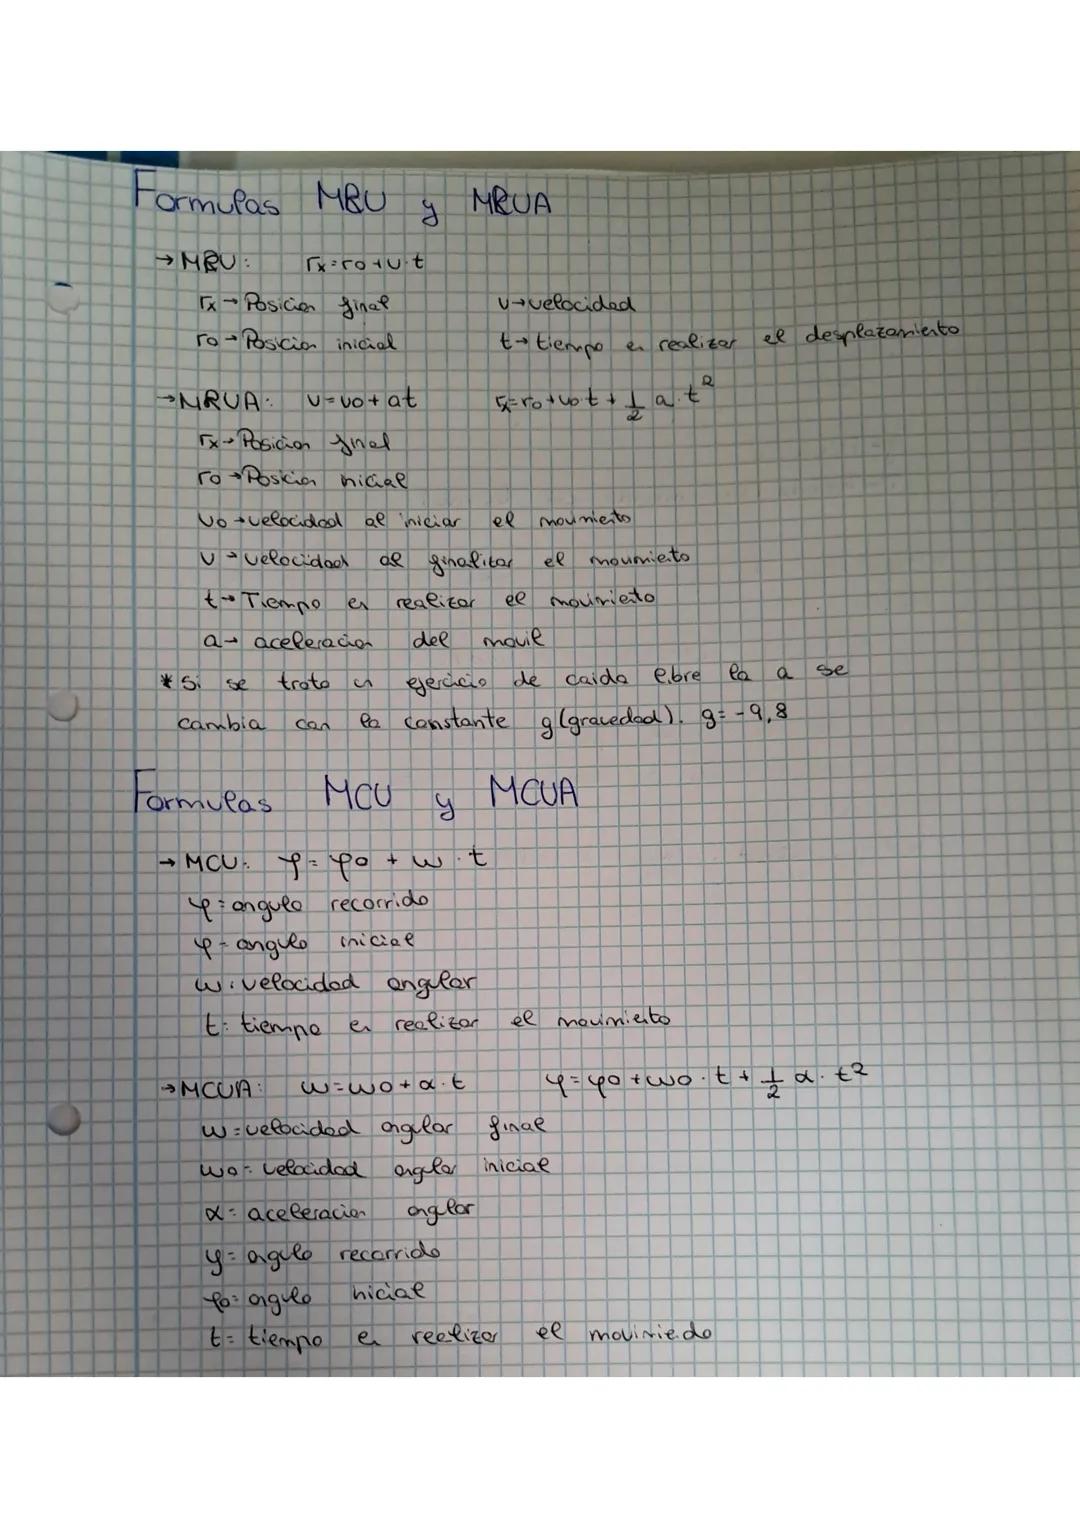 Formulas MRU y MRUA
→ MRU: rx=ro+v·t
rx→Posicion final v→velocidad
ro→Posicion inicial t→tiempo en realizar el desplazamiento
→MRUA: v=vo+at rx=ro+vo·t+1/2 a·t²
rx→Posicion final
ro→Posicion inicial
vo→velocidad al iniciar el movimiento
v→velocidad al finalizar el movimiento
t→Tiempo en realizar el movimiento
a→ aceleracion del movil
* Si se trata un ejercicio de caida libre la a se
cambia con la constante g(gravedad). g=-9,8
Formulas MCU y MCUA
→ MCU: φ=φo + w·t
φ=angulo recorrido
φ-angulo inicial
w:velocidad angular
t: tiempo en realizar el movimiento
→MCUA: w=wo+α·t φ=φo+wo·t+1/2 α·t²
w=velocidad angular final
wo=velocidad angular inicial
α=aceleracion angular
φ=angulo recorrido
φo=angulo inicial
t=tiempo en realizar el moviniedo